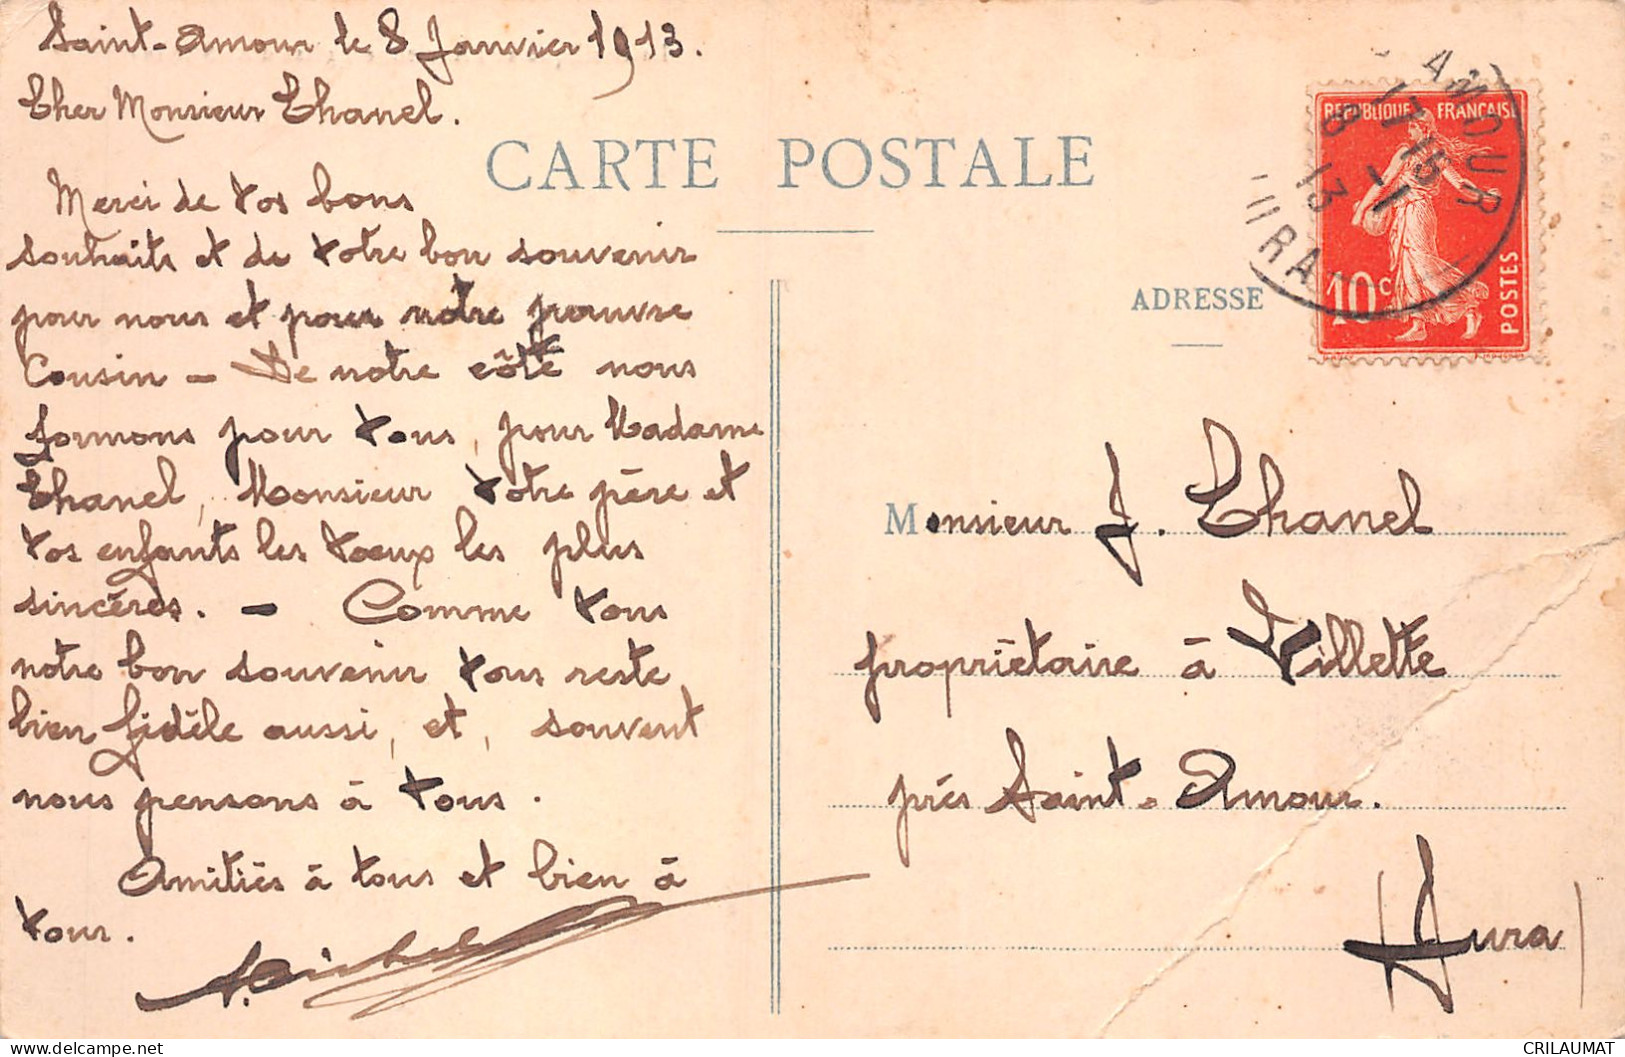 Saint-Amour le 8 Janvier 1913.
Cher Monsieur Chanel.
Merci de vos bons
souhaits et de votre bon souvenir
pour nous et pour notre pauvre
Cousin — De notre côté nous
formons pour vous, pour Madame
Chanel, Monsieur votre père et
vos enfants les vœux les plus
sincères. — Comme vous
notre bon souvenir vous reste
bien fidèle aussi, et, souvent
nous pensons à vous.
Amitiés à tous et bien à
vous.
CARTE POSTALE
ADRESSE
REPUBLIQUE FRANÇAISE
10c
POSTES
AMOUR
17 15
8 -1
13
JURA
Monsieur J. Chanel
propriétaire à Villette
près Saint-Amour.
(Jura)
delcampe.net
CRILAUMAT